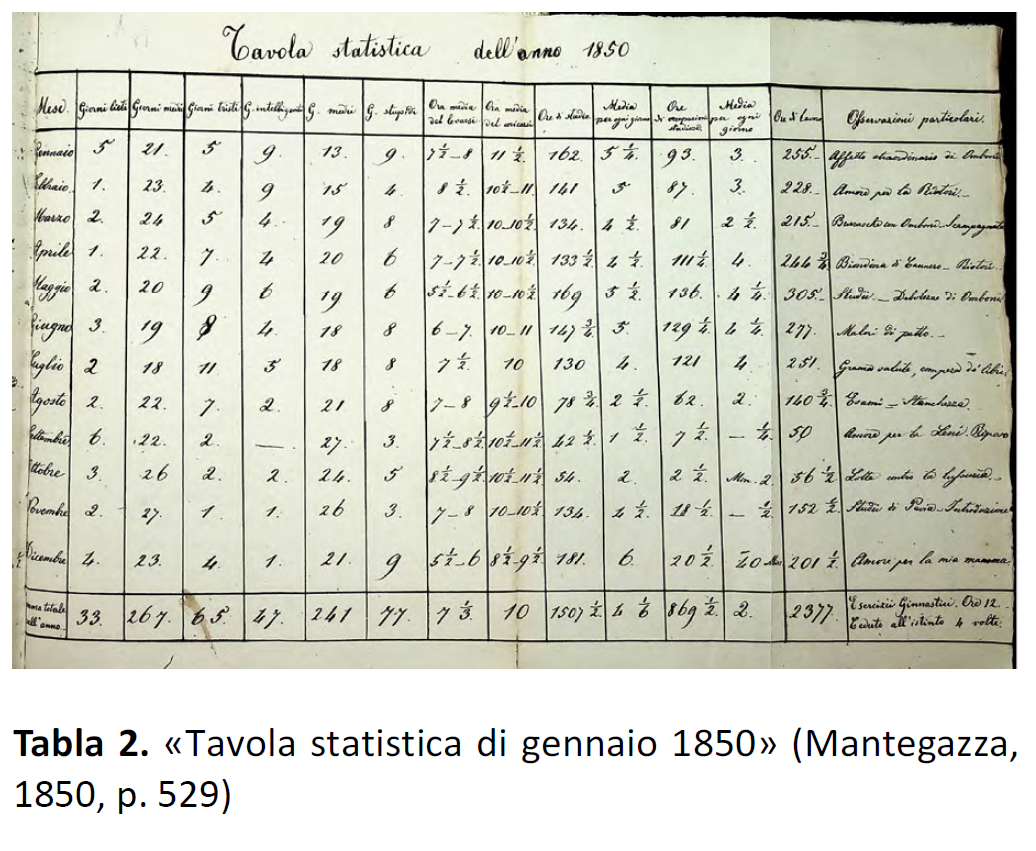 Tavola statistica dell'anno 1850
Mese. Giorni lieti Giorni medii Giorni tristi G. intelligenti G. medii G. stupidi Ora media del levarsi Ora media del coricarsi Ore di studio Media per ogni giorno Ore di occupazioni studiose Media per ogni giorno Ore di lavoro Osservazioni particolari.
Gennaio 5 21. 5 9 13. 9. 7 1/2-8 11 1/2. 162. 5 1/4. 93. 3. 255.- Affetto straordinario di Omboni
Febbraio. 1. 23 4. 9 15 4. 8 1/2. 10 1/2-11 141 5 87. 3. 228.- Amore per la Ristori.-
Marzo 2. 24 5 4. 19 8 7-7 1/2. 10-10 1/2. 134. 4 1/2. 81 2 1/2. 215.- con Omboni
Aprile 1. 22. 7. 4 20 6 7-7 1/2. 10-10 1/2. 133 1/2 4 1/2. 111 1/4. 4. 244 3/4. di Cannero - Ristori.-
Maggio 2. 20 9 6 19 6 5 1/2-6 1/2. 10-10 1/2. 169 5 1/2. 136. 4 1/4. 305.- Studii. - Debolezze di Omboni
Giugno 3. 19 8 4. 18 8 6-7. 10-11 147 3/4 5. 129 1/4. 4 1/4. 277. Malori di petto.-
Luglio 2 18 11 5 18 8 7 1/2. 10 130 4. 121 4 251. Grama salute, compera di libri.
Agosto 2. 22. 7. 2. 21 8 7-8 9 1/2-10 78 3/4. 2 1/2. 62. 2. 140 3/4. Esami = Stanchezza.
Settembre 6. 22. 2. — 27. 3. 7 1/2-8 1/2. 10 1/2-11 1/2 42 1/2. 1 1/2. 7 1/2. - 1/4. 50 Amore per la Riposo
Ottobre 3. 26 2. 2 24. 5 8 1/2-9 1/2. 10 1/2-11 1/2. 54. 2. 2 1/2. Men. 2. 56 1/2 Lotta contro la lussuria.-
Novembre 2. 27. 1 1. 26 3. 7-8 10-10 1/2. 134. 4 1/2. 18 1/2. - 1/2. 152 1/2. Studii di Pavia - Introduzione
Dicembre 4. 23. 4. 1. 21. 9 5 1/2-6 8 1/2-9 1/2. 181. 6. 20 1/2. 40 201 1/2. Amore per la mia mamma.
Somma totale dell'anno.- 33. 267. 65. 47. 241 77. 7 1/3 10 1507 1/2. 4 1/6 869 1/2. 2. 2377. Esercizii Ginnastici. Ore 12. Ceduto all'istinto 4 volte.
Tabla 2. «Tavola statistica di gennaio 1850» (Mantegazza,
1850, p. 529)